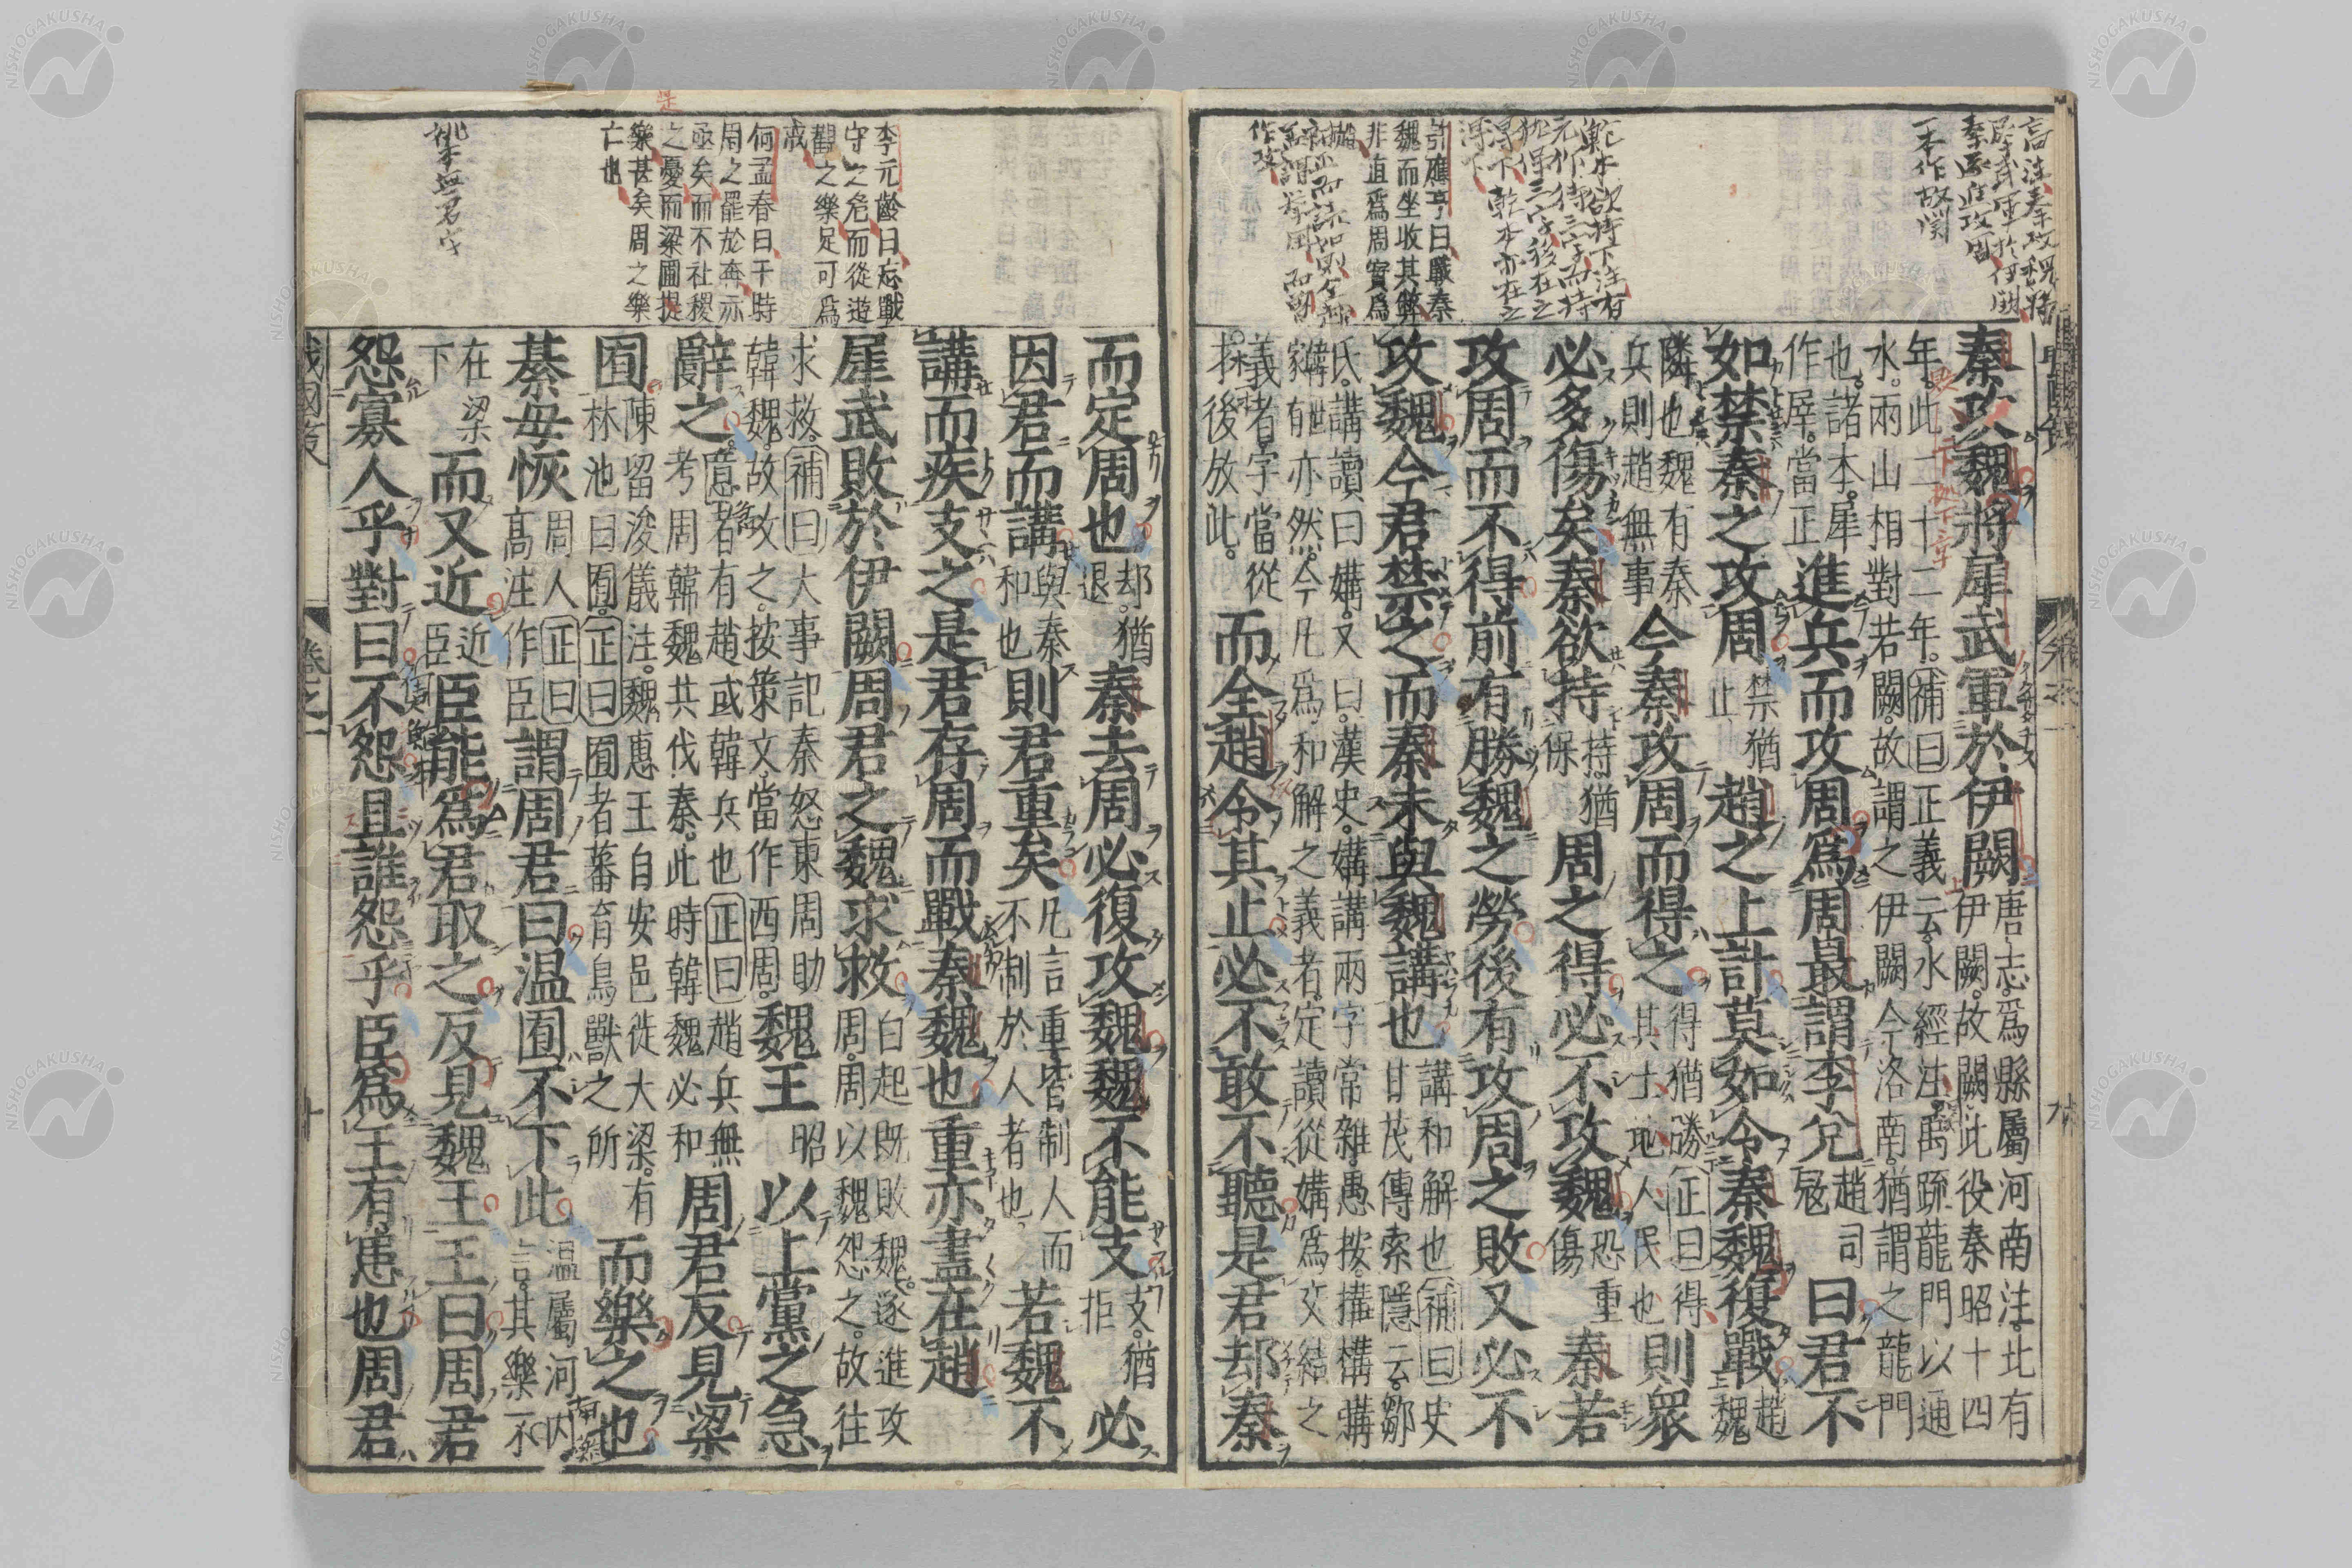 秦攻魏將犀武軍於伊闕唐志爲縣屬河南注北有伊闕故闕此役秦昭十四
年此二十二年補曰正義云水經注禹疏龍門以通
水兩山相對若闕故謂之伊闕今洛南猶謂之龍門
也諸本犀作犀當正進兵而攻周爲周最謂李兌趙司寇曰君不
如禁秦之攻周禁猶止趙之上計莫如令秦魏復戰趙魏
隣也魏有秦兵則趙無事今秦攻周而得之得猶勝其土地人民也正曰得則衆
必多傷矣秦欲持持猶保周之得必不攻魏恐重傷秦若
攻周而不得前有勝魏之勞後有攻周之敗又必不
攻魏今君禁之而秦未與魏講也講和解也補曰史甘茂傳索隱云鄒
氏講讀曰媾又曰漢史媾講兩字常雜愚按搆構講
韻有亦然今凡爲和解之義者定讀從媾爲文結之
義者字當從扌後放此而全趙令其止必不敢不聽是君却秦
而定周也却猶退秦去周必復攻魏魏不能支支猶拒必
因君而講與秦和也則君重矣凡言重皆制人而不制於人者也若魏不
講而疾支之是君存周而戰秦魏也重亦盡在趙
犀武敗於伊闕周君之魏求救白起既敗魏遂進攻周周以魏怨之故往
求救補曰大事記秦怒東周助韓魏故攻之按策文當作西周魏王昭以上黨之急
辭之意者有趙或韓兵也正曰趙兵無考周韓魏共伐秦此時韓魏必和周君反見梁
囿陳留浚儀注魏惠王自安邑徙大梁有林池曰囿正曰囿者蕃育鳥獸之所而樂之也
綦母恢周人正曰高注作臣謂周君曰温囿不下此温屬河内言其樂不
在梁下而又近近臣臣能爲君取之反見魏王王曰周君
怨寡人乎對曰不怨且誰怨乎臣爲王有患也周君
高注秦攻魏將
犀武軍於伊闕
秦遂進攻周
一本作故闕
引應亨曰戰秦
魏而坐收其弊
非直爲周實爲
作攻
李元齡曰忘戰
守之危而從遊
觀之樂足可爲
戒
何孟春曰干時
周之罷於奔亦
亟矣而不社稷
之憂而梁圃提
樂甚矣周之樂
亡也
姚本無君字